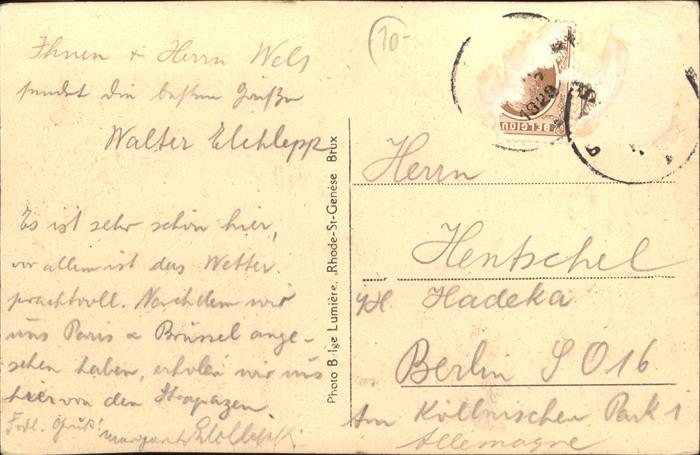 10-
Ihnen & Herrn Wels
sendet die besten Grüße
Walter
Es ist sehr schön hier,
vor allem ist das Wetter
prachtvoll. Nachdem wir
uns Paris & Brüssel ange-
sehen haben, erholen wir uns
hier von den Strapazen.
Frdl. Gruß!
Photo Belge Lumière, Rhode-St-Genèse Brux
BELGIQU
1929
Herrn
Hentschel
Hadeka
Berlin SO 16
Am Köllnischen Park 1
Allemagne